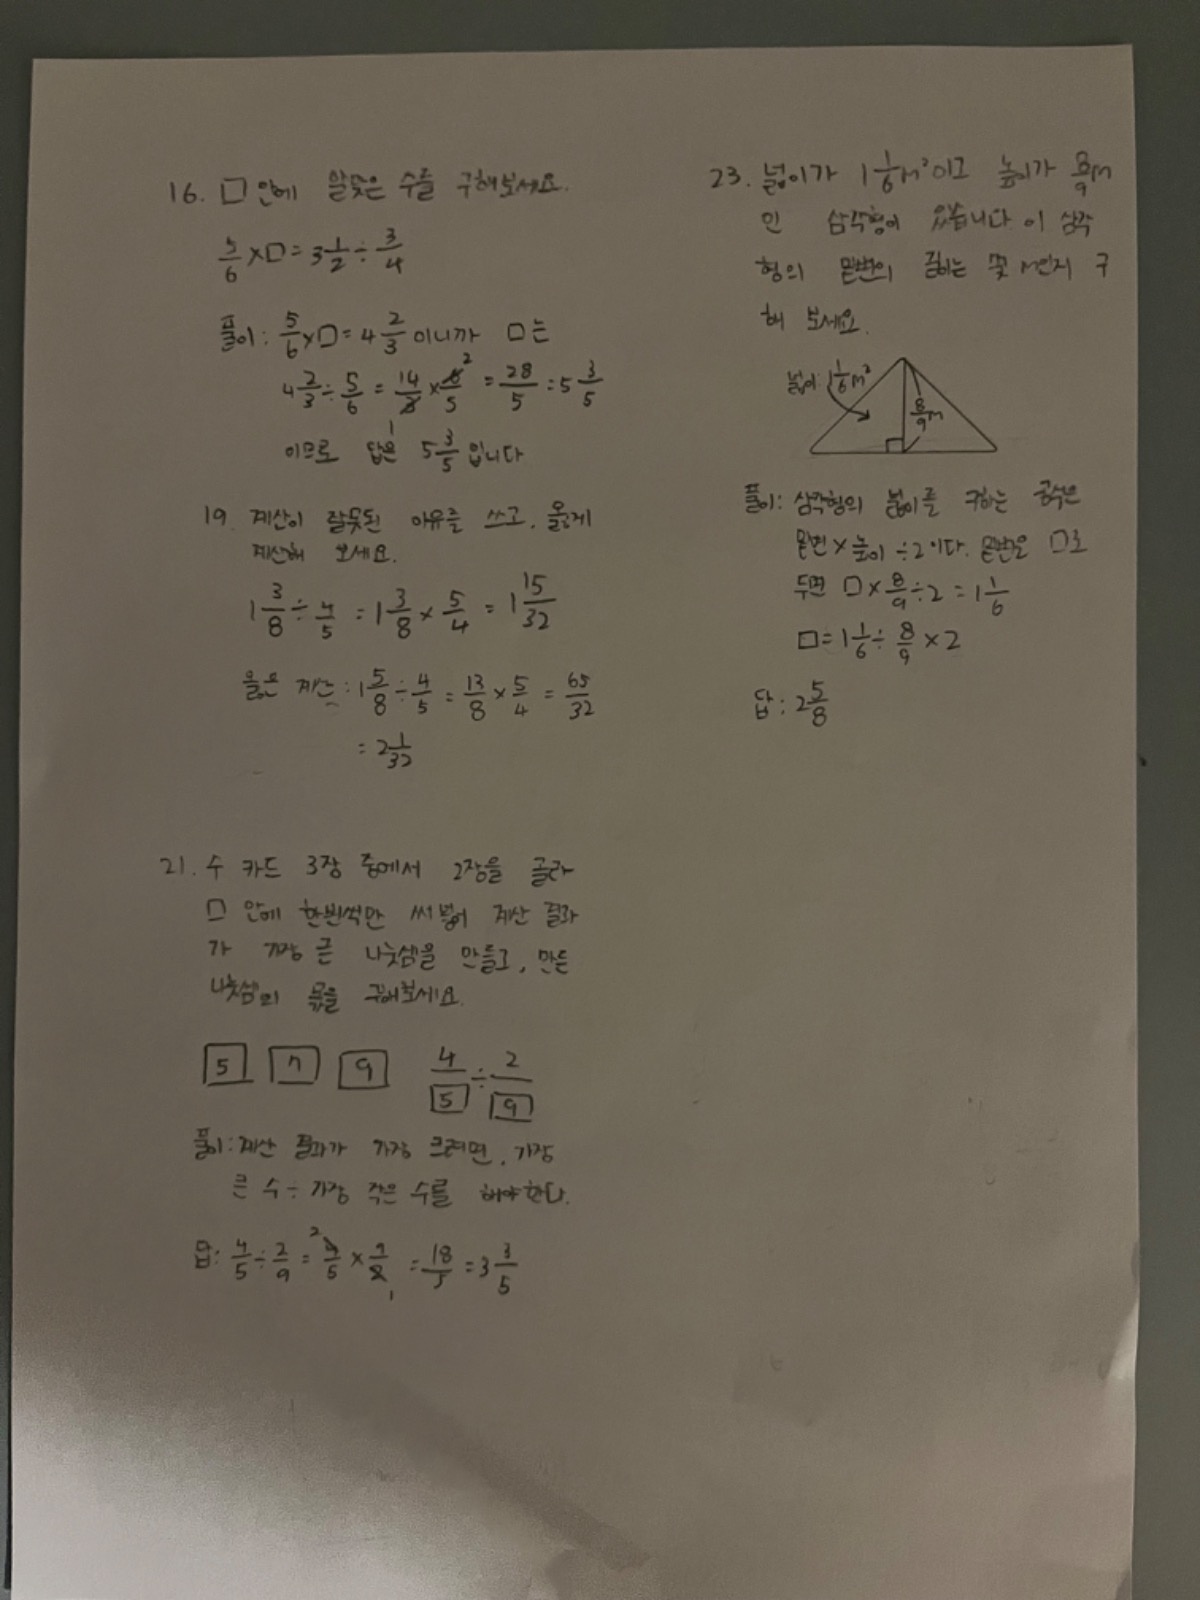 16. □ 안에 알맞은 수를 구해보세요.
5/6 × □ = 3 1/2 ÷ 3/4
풀이: 5/6 × □ = 4 2/3 이니까 □는
4 2/3 ÷ 5/6 = 14/3 × 6/5 = 28/5 = 5 3/5
2
1
이므로 답은 5 3/5 입니다
19. 계산이 잘못된 이유를 쓰고, 옳게
계산해 보세요.
1 3/8 ÷ 4/5 = 1 3/8 × 5/4 = 1 15/32
옳은 계산: 1 5/8 ÷ 4/5 = 13/8 × 5/4 = 65/32
= 2 1/32
21. 수 카드 3장 중에서 2장을 골라
□ 안에 한번씩만 써 넣어 계산 결과
가 가장 큰 나눗셈을 만들고, 만든
나눗셈의 몫을 구해보세요.
5 7 9 4/5 ÷ 2/9
풀이: 계산 결과가 가장 크려면, 가장
큰 수 ÷ 가장 작은 수를 해야한다.
답: 4/5 ÷ 2/9 = 4/5 × 9/2 = 18/5 = 3 3/5
2
1
23. 넓이가 1 1/6 m²이고 높이가 8/9 m
인 삼각형이 있습니다 이 삼각
형의 밑변의 길이는 몇 m인지 구
해 보세요.
넓이: 1 1/6 m²
8/9 m
풀이: 삼각형의 넓이를 구하는 공식은
밑변 × 높이 ÷ 2 이다. 밑변을 □로
두면 □ × 8/9 ÷ 2 = 1 1/6
□ = 1 1/6 ÷ 8/9 × 2
답: 2 5/8